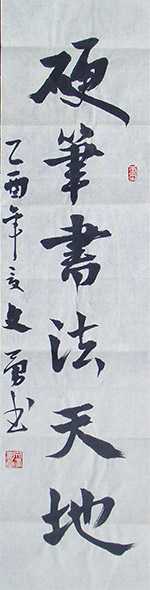 硬筆書法天地
乙酉年文勇书